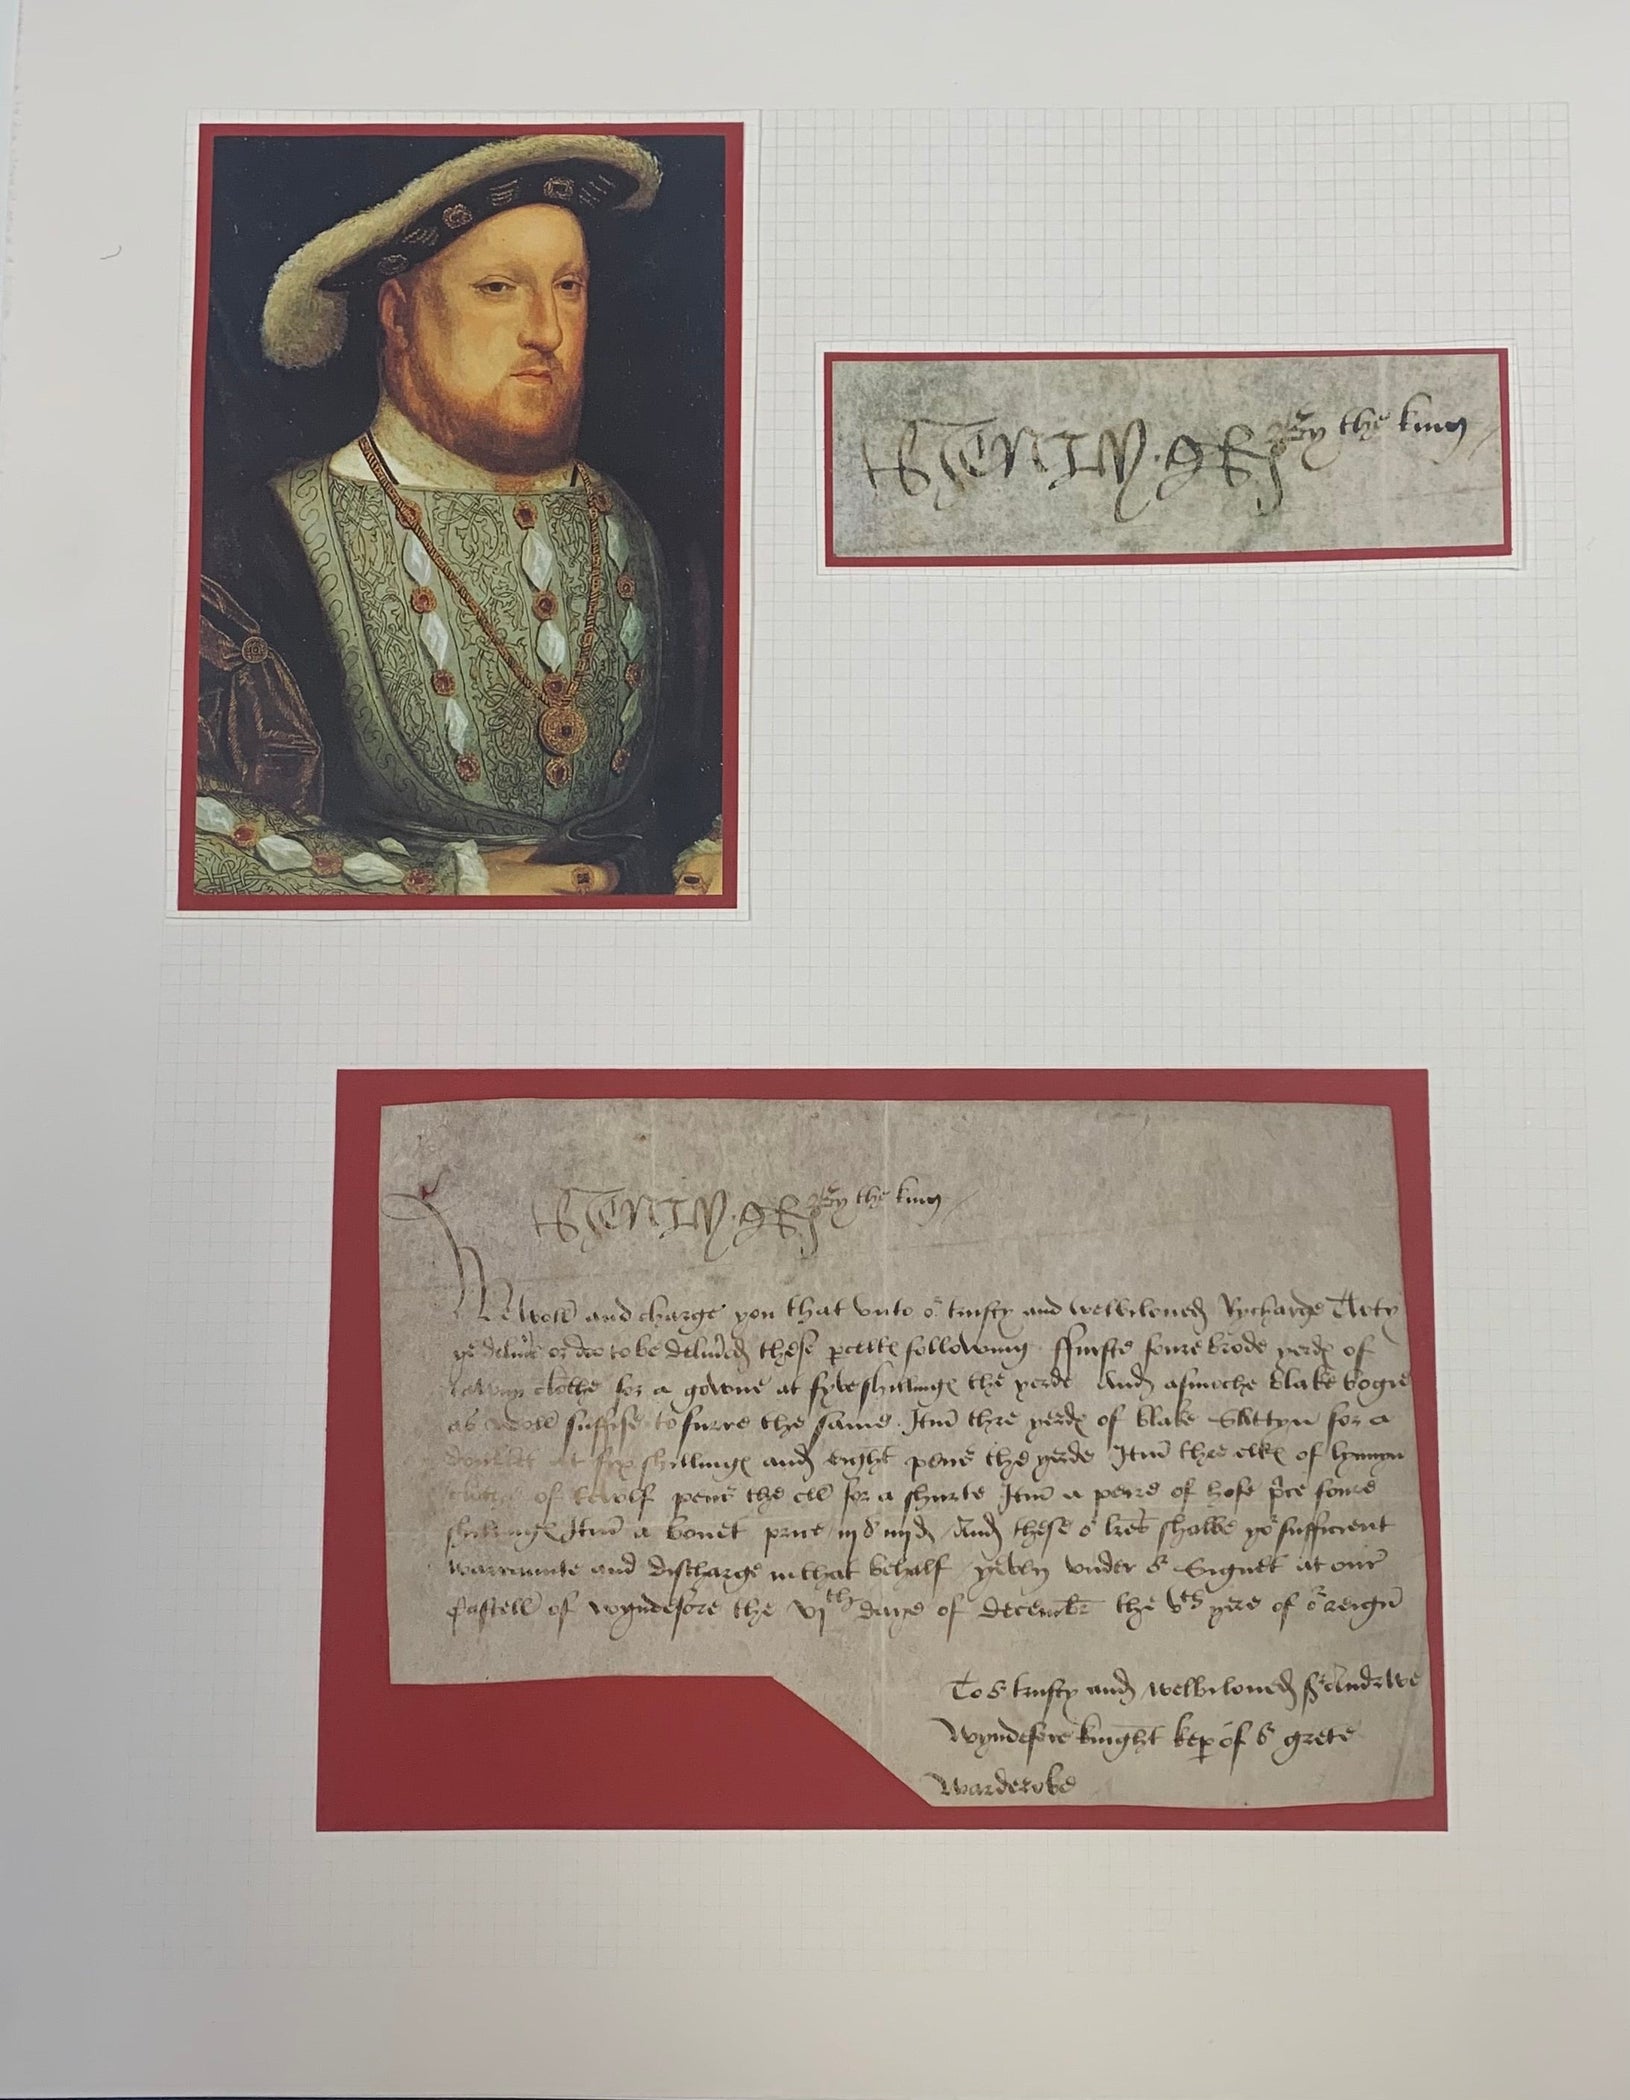 HENRY R By the king
HENRY R By the king
We woll and charge you that vnto or trusty and welbiloued Rycharde
ye deliuer or doo to be deliuered these pcells following ffurste foure brode yerds of
tawny clothe for a gowne at fyve shillings the yerde And asmoche blake bogie
as woll suffise to furre the same. Itm thre yerds of blake Sattyn for a
doublet at six shillings and eight pene the yerde Itm thre ells of lynnyn
clothe of twolf pene the ell for a shurte Itm a peire of hose price foure
shillings Itm a bonet price iij s iiij d And these or lres shalbe yor sufficient
warraunte and discharge in that behalf yeven vnder or Signet at oure
Castell of wyndesore the vjth daye of decembr the vth yere of or reign
To or trusty and welbiloued Sr Andrewe
Wyndesore knight kep of or grete
Warderobe